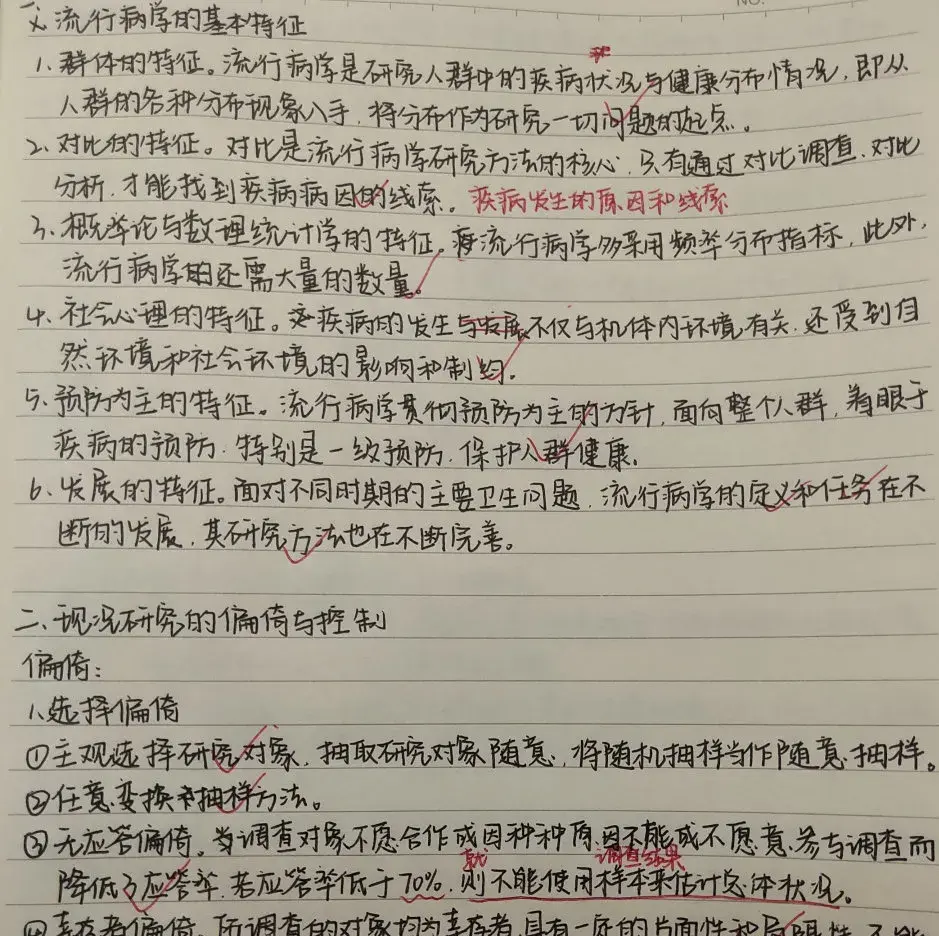 NO.
一、流行病学的基本特征
1、群体的特征。流行病学是研究人群中的疾病状况与健康分布情况，即从
人群的各种分布现象入手，将分布作为研究一切问题的起点。
2、对比的特征。对比是流行病学研究方法的核心，只有通过对比调查、对比
分析，才能找到疾病病因的线索。疾病发生的原因和线索
3、概率论与数理统计学的特征。流行病学多采用频率分布指标，此外，
流行病学还需大量的数量。
4、社会心理的特征。疾病的发生与发展不仅与机体内环境有关，还受到自
然环境和社会环境的影响和制约。
5、预防为主的特征。流行病学贯彻预防为主的方针，面向整个人群，着眼于
疾病的预防，特别是一级预防，保护人群健康。
6、发展的特征。面对不同时期的主要卫生问题，流行病学的定义和任务在不
断的发展，其研究方法也在不断完善。
二、现况研究的偏倚与控制
偏倚：
1、选择偏倚
①主观选择研究对象，抽取研究对象随意，将随机抽样当作随意抽样。
②任意变换抽样方法。
③无应答偏倚。当调查对象不愿合作或因种种原因不能或不愿意参与调查而
就 调查结果
降低了应答率，若应答率低于70%，则不能使用样本来估计总体状况。
④幸存者偏倚。所调查的对象均为幸存者，具有一定的片面性和局限性，不能